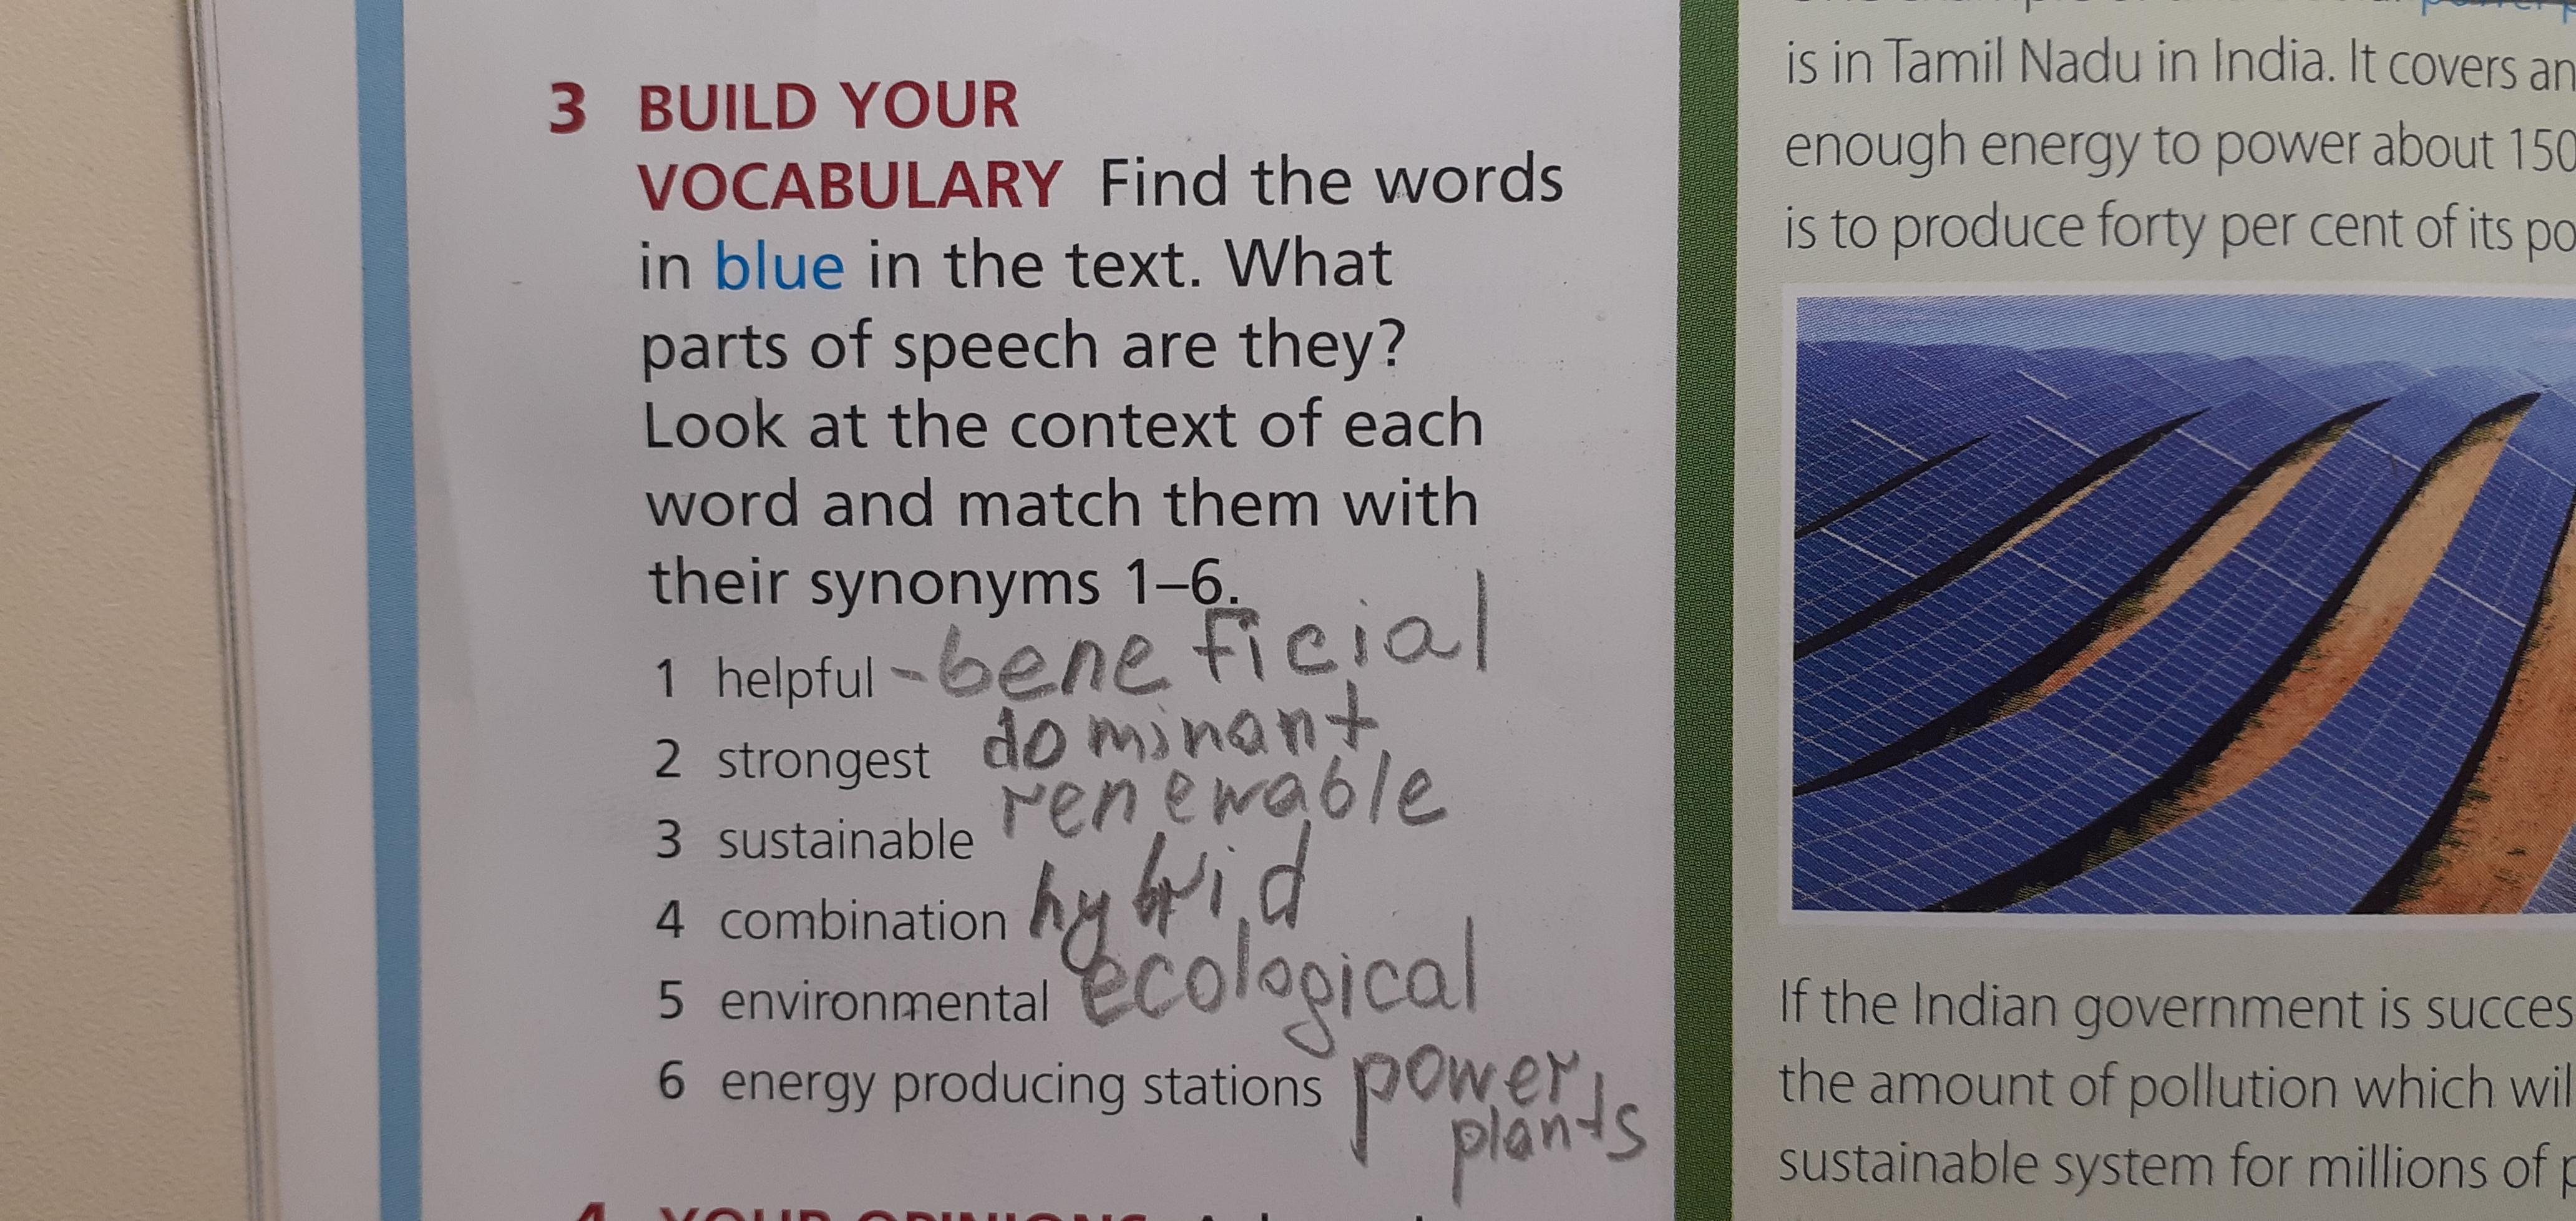 3 BUILD YOUR
VOCABULARY Find the words
in blue in the text. What
parts of speech are they?
Look at the context of each
word and match them with
their synonyms 1–6.
1 helpful - beneficial
2 strongest dominant
3 sustainable renewable
4 combination hybrid
5 environmental ecological
6 energy producing stations power
plants
4 YOUR OPINIONS
is in Tamil Nadu in India. It covers an
enough energy to power about 150
is to produce forty per cent of its po
If the Indian government is succes
the amount of pollution which wil
sustainable system for millions of p